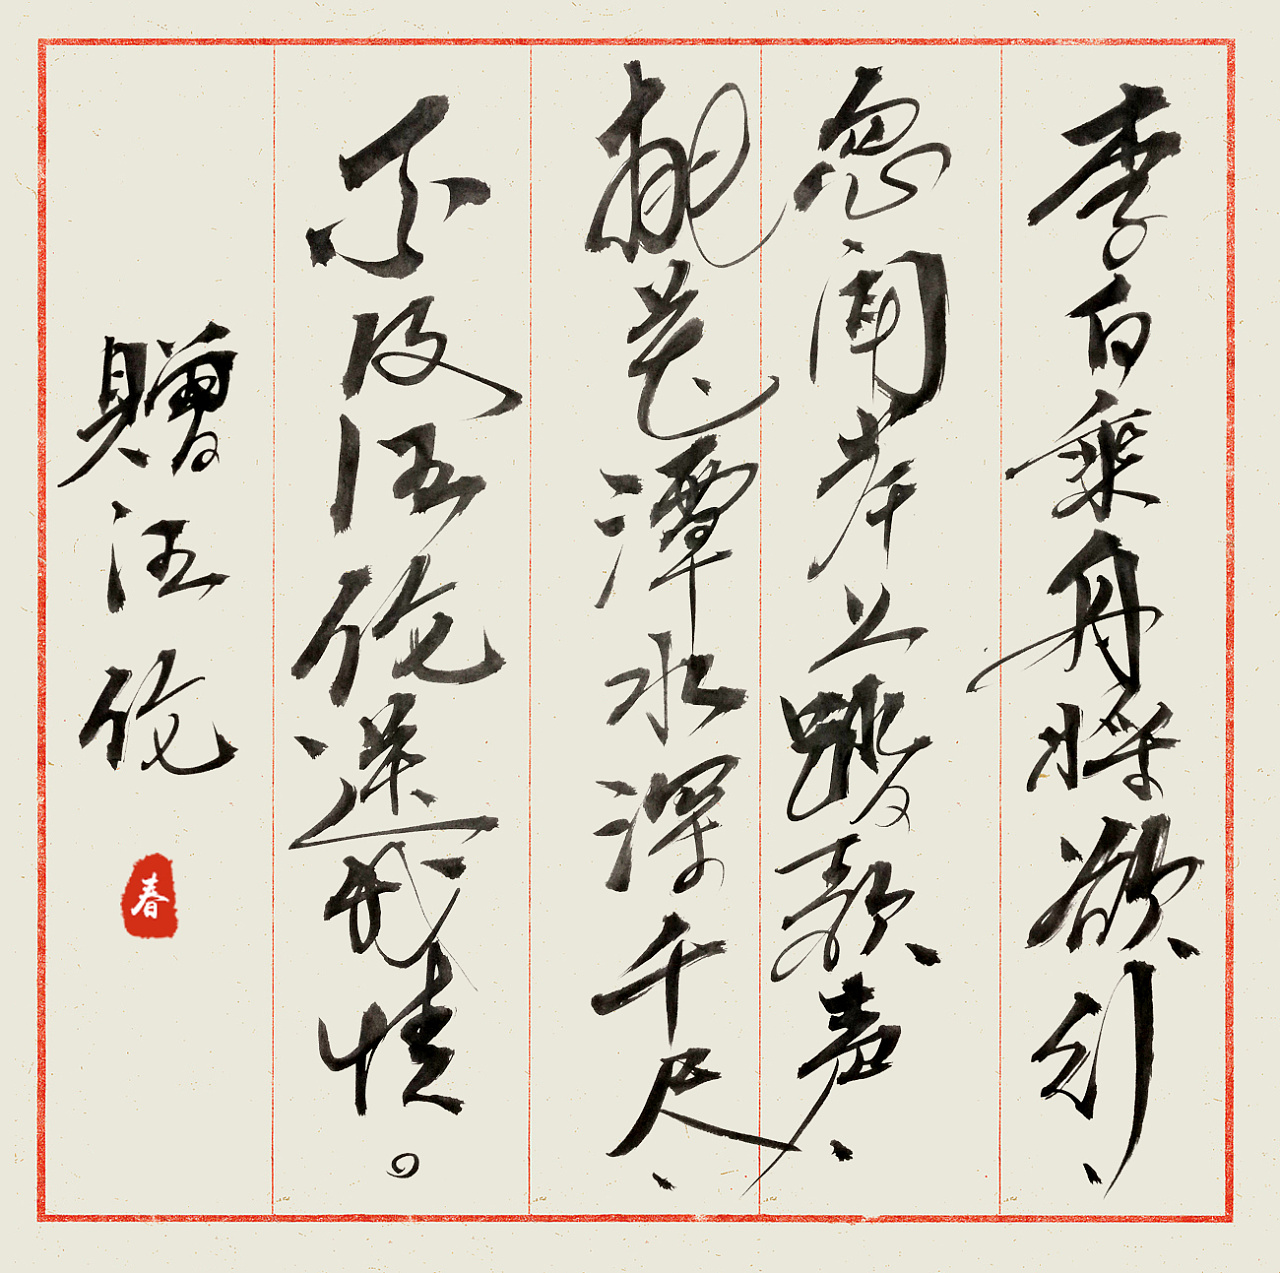 李白乘舟将欲行、
忽闻岸上踏歌声、
桃花潭水深千尺、
不及汪伦送我情。
贈汪伦
春